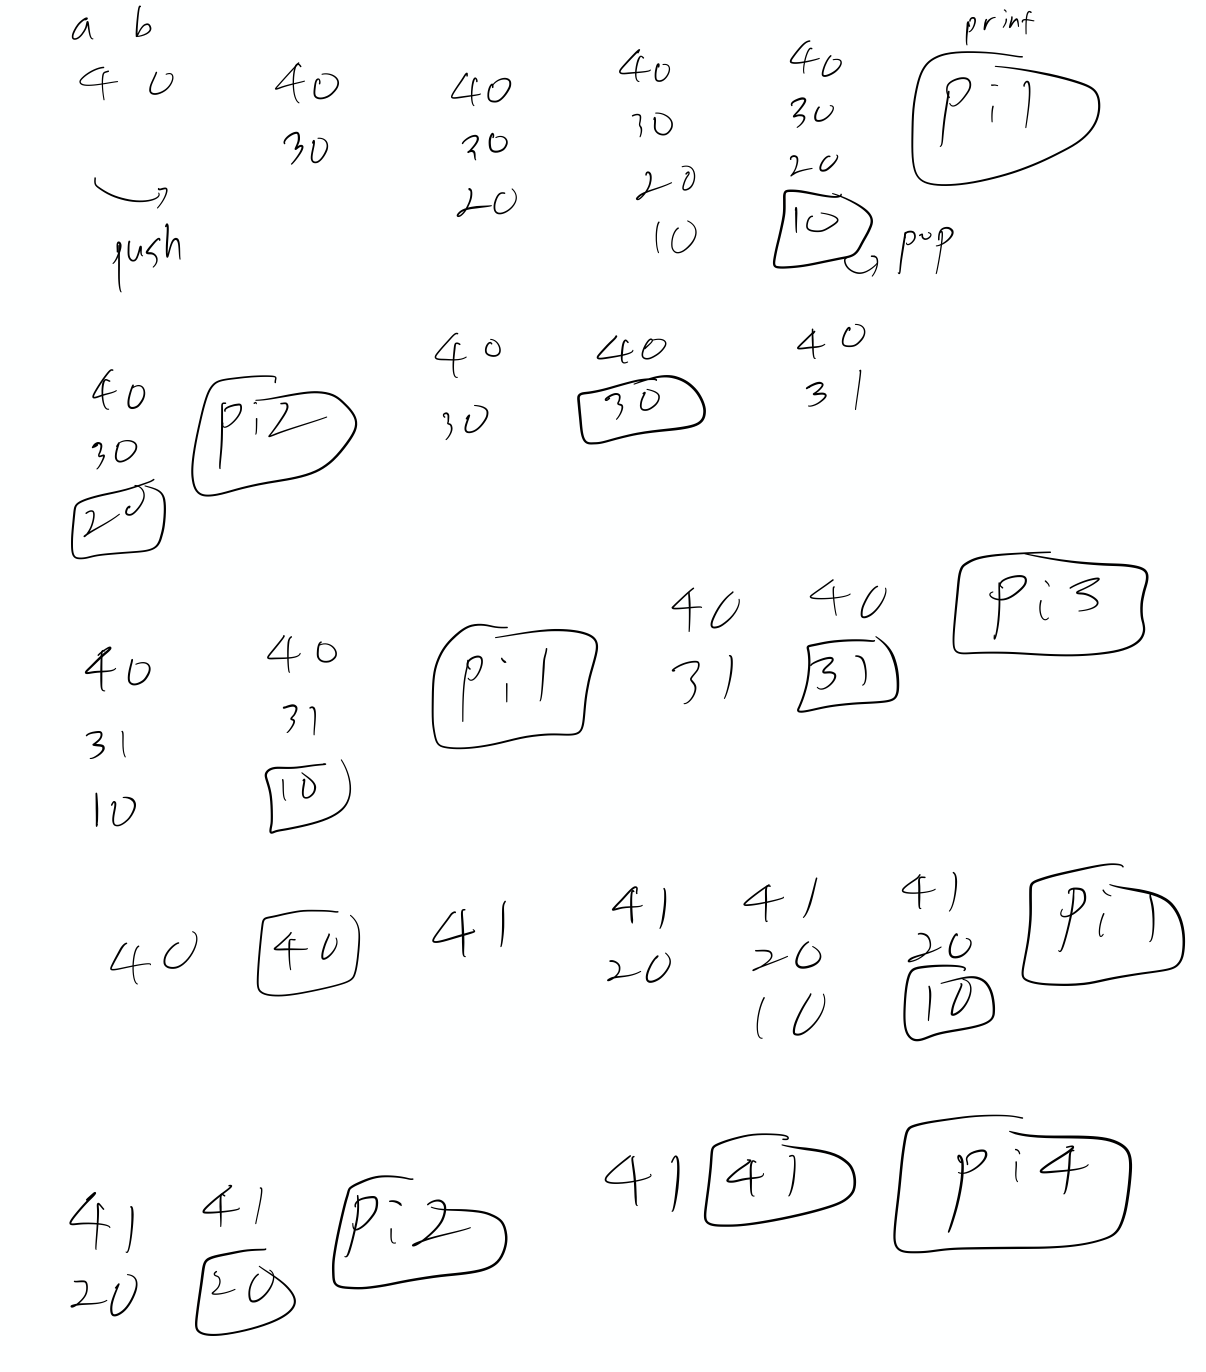 a b
print
40 40 40 40 40
30 30 30 30
20 20 20
10 10
pi1
push
pop
40 40 40
30 30 31
40
30
20
pi2
40 40
31 31
pi3
40 40
31 31
10 10
pi1
40 40 41
41 41 41
20 20 20
10 10
pi1
41 41
20 20
pi2
41 41
pi4